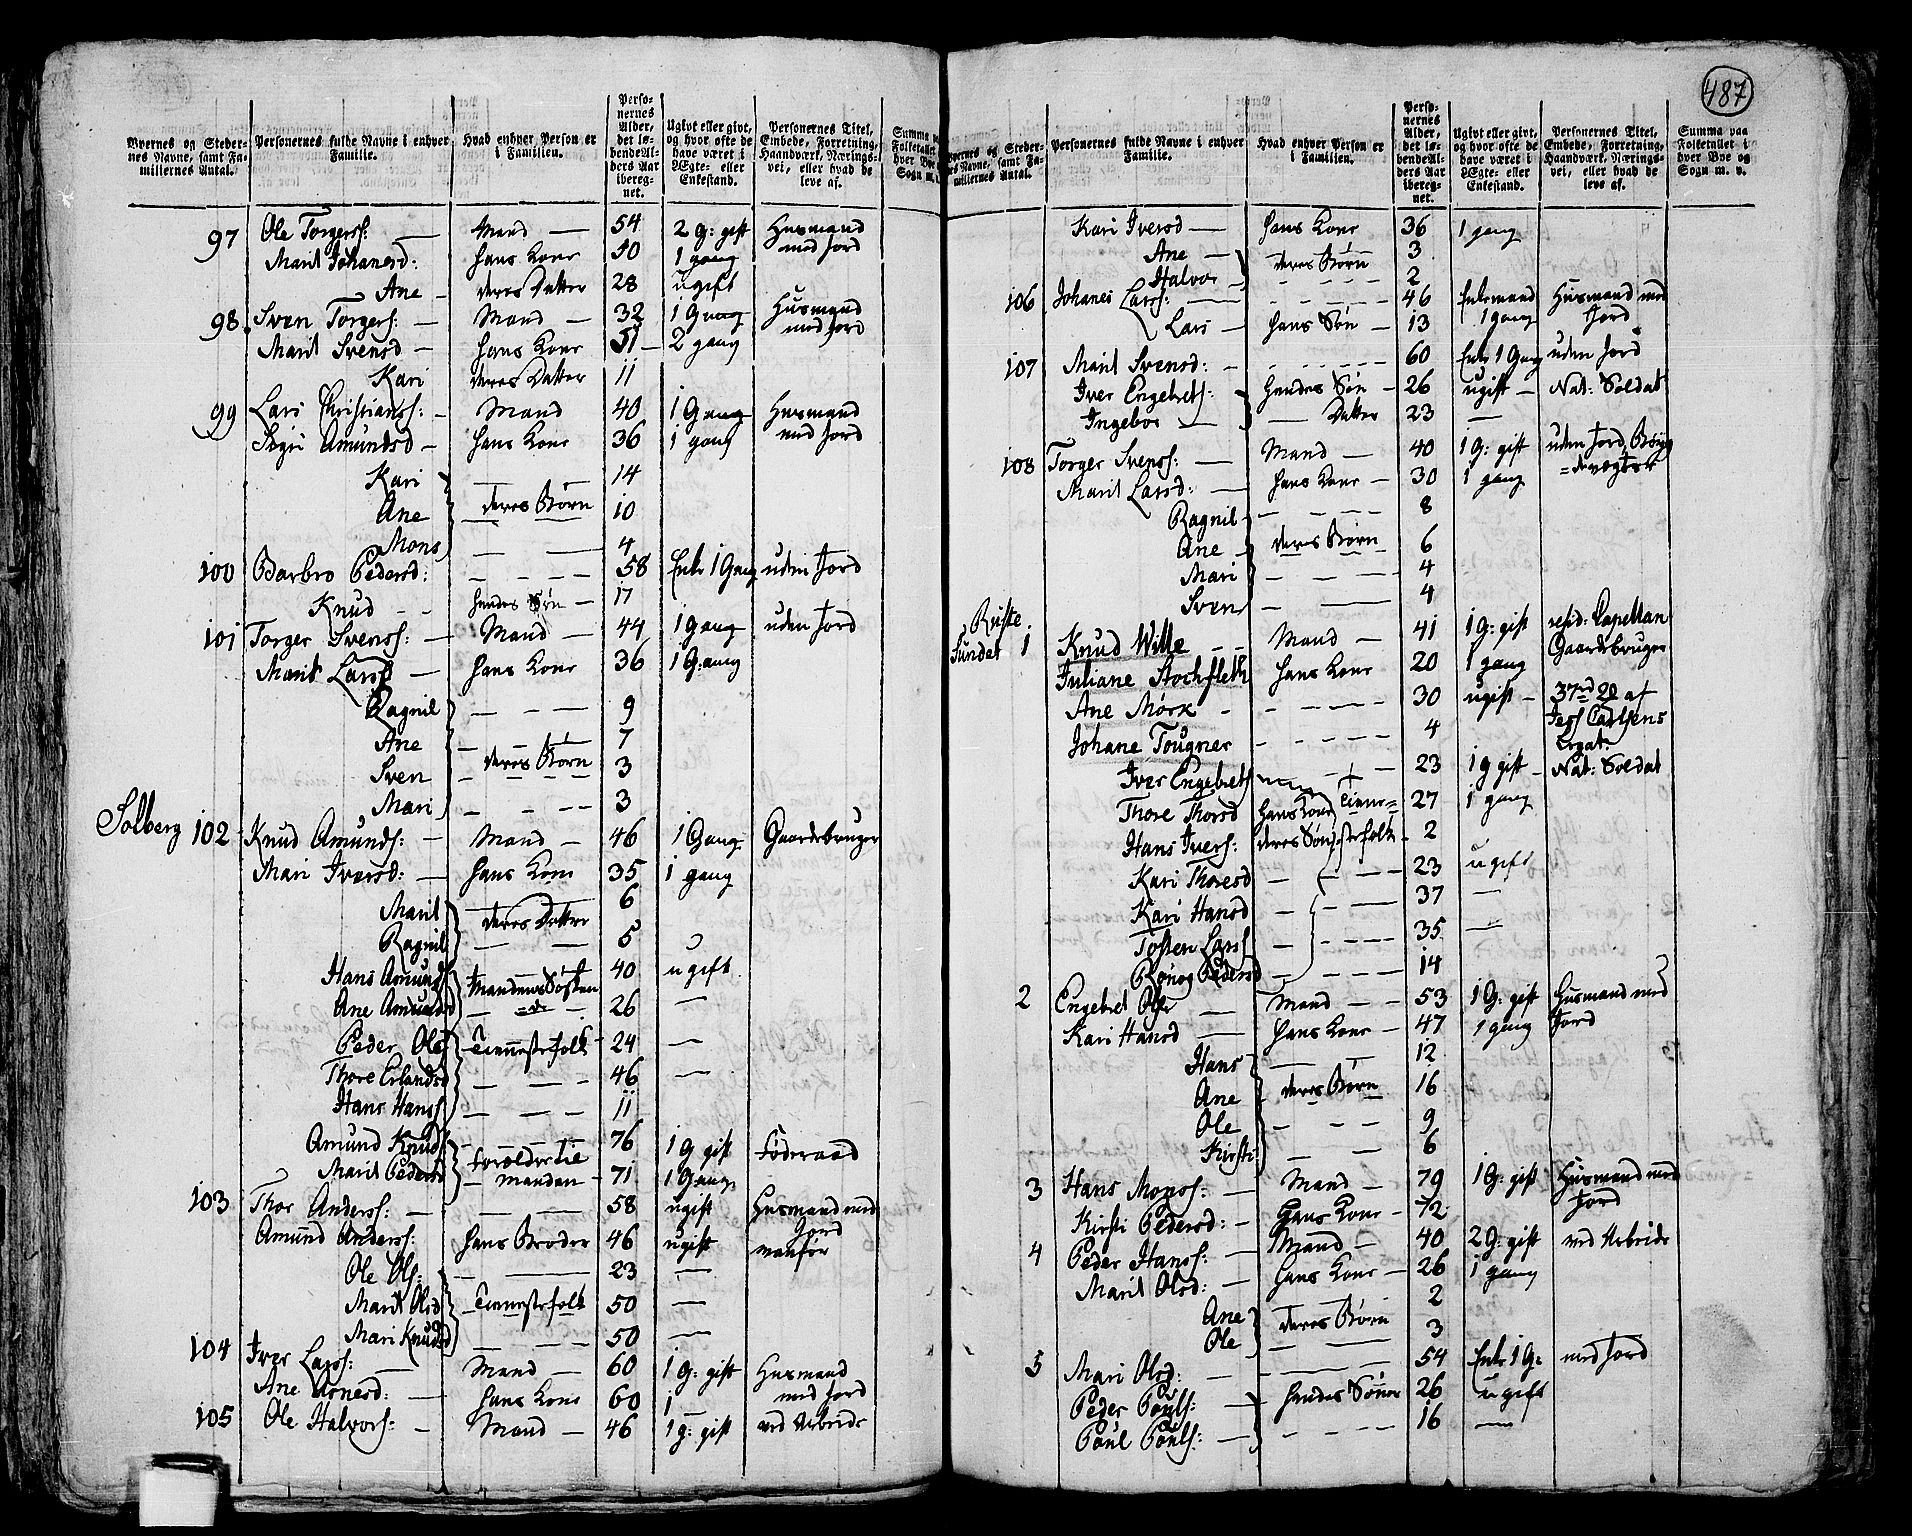 487
Byernes og Stedernes Navne, samt Familiernes Antal. | Personernes fulde Navne i enhver Familie. | Hvad enhver Person er i Familien. | Personernes Alder, det løbende Alders Aar iberegnet. | Ugivt eller givt, og hvor ofte de have været i Ægte- eller Enkestand. | Personernes Titel, Embede, Forretning, Haandværk, Næringsvei, eller hvad de leve af. | Summa
97 Ole Torgerss: — Mand — 54 2 G: gift Husmand
Marit Johanesd: hans Kone 50 1 gang med Jord
Ane — deres Datter 28 ugift
98. Sven Torgers: — Mand — 32 1 Gang Husmand
Marit Svensd — hans Kone 51 — 2 gang med Jord
Kari deres Datter 11
99 Lars Christianss: — Mand 40 1 Gang Husmand
Sigri Amundsd — hans Kone 36 1 gang med Jord
Kari — — 14
Ane deres Børn 10
Mons — — 4
100 Barbro Pedersd: — — — 58 Enke 1 Gang uden Jord
Knud — — hendes Søn — 17
101 Torger Svenss: — Mand — 44 1 Gang uden Jord
Marit Larsd — hans Kone 36 1 Gang
Ragnil — — — 9
Ane — — — 7
Sven deres Børn 3
Mari — — — 3
Solberg 102 Knud Amunds: — Mand — 46 1 Gang Gaardebruger
Mari Iversd: — hans Kone 35 1 gang
Marit 6
Ragnil deres Datter 5
Hans Amunds 40 ugift
Ane Amundsd Mandens Søsken= de 26 —
Peder Ols Tienestefolk 24 —
Thore Erlandsd — — 46 —
Hans Hanss — — — 11
Amund Knuds — — — 76 1 G gift Føderaad
Marit Pedersd Forældre til Manden 71 1 Gang
103 Thor Anderss: — — — 58 ugift Husmand med
Amund Anderss: hans Broder 46 ugift Jord
Ole Ols: — — 23 —
Marit Olsd Tienestefolk 50 —
Mari Knudsd — — — 50 —
104 Iver Larss: — Mand — 60 1 G: gift Husmand
Ane Arnesd: — hans Kone 60 1 — med Jord
105 Ole Halvors: — Mand — 46 1 g: gift ved Arbeide
Byernes og Stedernes Navne, samt Familiernes Antal. | Personernes fulde Navne i enhver Familie. | Hvad enhver Person er i Familien. | Personernes Alder, det løbende Alders Aar iberegnet. | Ugivt eller givt, og hvor ofte de have været i Ægte- eller Enkestand. | Personernes Titel, Embede, Forretning, Haandværk, Næringsvei, eller hvad de leve af. | Summa paa Folketallet i hver Bye og Sogn m. v.
Kari Iversd — hans Kone 36 1 gang
Ane — 3
Halvor deres Børn 2
106 Johanes Larss: — — — — 46 Enkemand Husmand med
Lars — hans Søn — 13 1 gang Jord
107 Marit Svensd: — — — — 60 Enke 1 Gang uden Jord
Iver Engebrets: hendes Søn — 26 ugift — Nat: Soldat
Ingebor — — Datter 23 —
108 Torger Svenss: — Mand — 40 1 G: gift uden Jord
Marit Larsd: — hans Kone — 30 1 gang
Ragnil — — — 8
Ane deres Børn 6
Mari — — — 4
Sven — — 4
Ruste
Sundet 1 Knud Wille — — Mand — 41 1 G: gift resid: Capellan
Juliane Stochfleth hans Kone 20 1 gang Gaardebruger
Ane Mørk — — — — 30 ugift —
Johane Tougner — — — — 4
Iver Engebrets 23 1 g gift — Nat: Soldat
Thore Thorsd hans Kone Tiene= 27 1 gang
Hans Ivers: deres Søn stefolk — 2
Kari Thoresd — — — 23 ugift
Kari Hansd — — — 37 —
Tosten Larss — — — 35 —
Rønog Pedersd — — — 14
2 Engebret Ols — Mand — — 53 1 G: gift Husmand med
Kari Hansd — hans Kone — 47 1 gang Jord
Hans — — 12
Ane deres Børn 16
Ole — — — 9
Kirsti — — — 6
3 Hans Monss: — Mand — — 79 1 G: gift Husmand med
Kirsti Pedersd: — hans Kone — 72 Jord
4 Peder Hanss: — Mand — 40 2 G: gift ved Arbeide
Marit Olsd: — hans Kone — 26 1 gang
Ane 2
Ole deres Børn 3
5 Mari Olsd: — — — — 54 Enke 1 G: med Jord
Peder Pouls: — hendes Sønner 26 ugift
Poul Pouls: — — — — 16 —